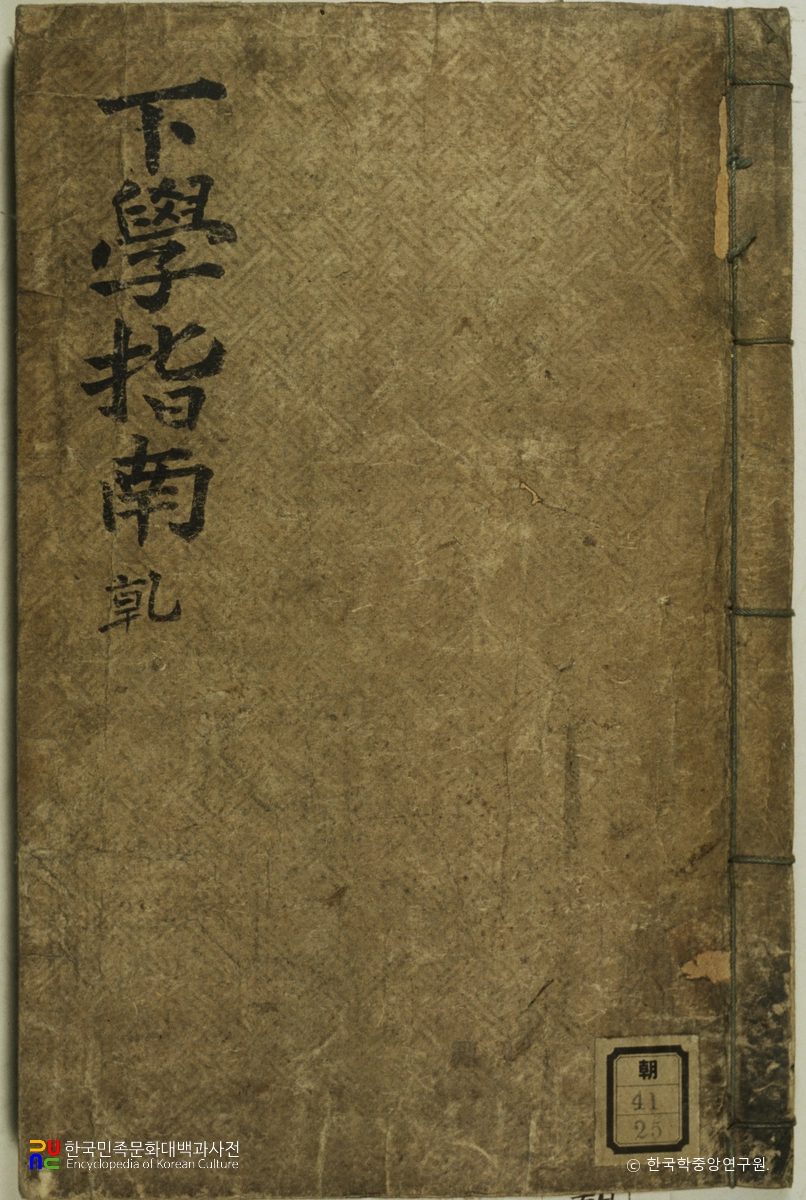 下學指南
乹
朝
41
25
한국민족문화대백과사전
Encyclopedia of Korean Culture
© 한국학중앙연구원